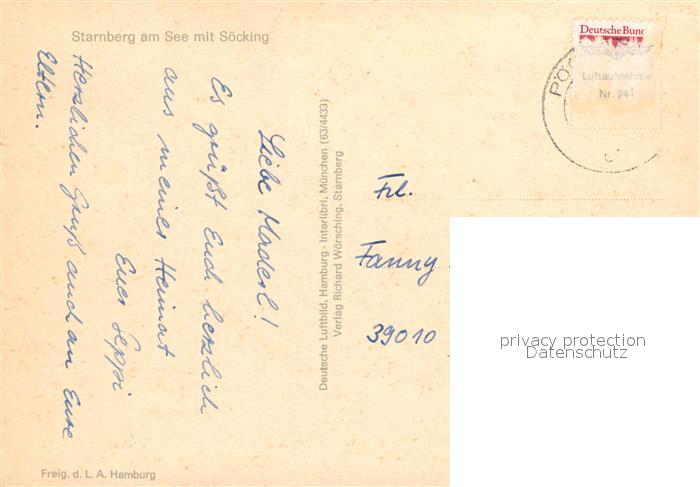 Starnberg am See mit Söcking
Deutsche Bund
Luftaufnahme
Nr. 241
PÖ
Liebe Maderl!
Es grüßt Euch herzlich
aus meiner Heimat
Euer Seppi
Herzlichen Gruß auch an Eure
Eltern.
Deutsche Luftbild, Hamburg · Interlibri, München (63/4433)
Verlag Richard Wörsching, Starnberg
Frl.
Fanny
39010
privacy protection
Datenschutz
Freig. d. L. A. Hamburg